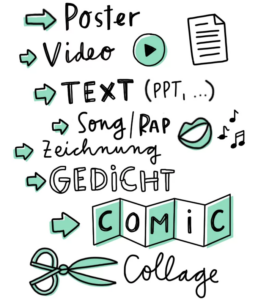 Poster
Video
TEXT (PPT, ...)
Song/RAP
Zeichnung
GEDiCHT
COMiC
Collage